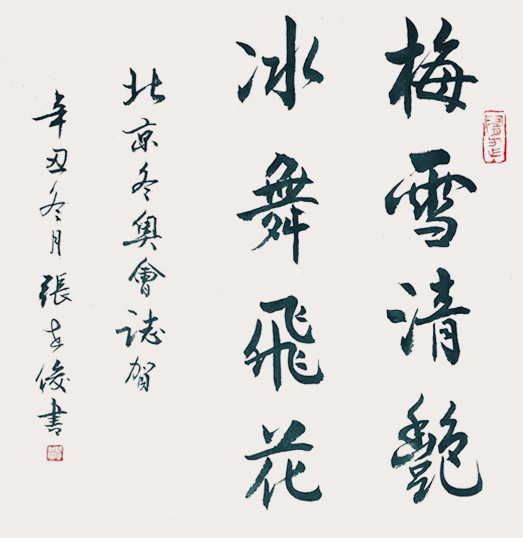 梅雪清艷
冰舞飛花
北京冬奥會誌賀
辛丑冬月張志俊書